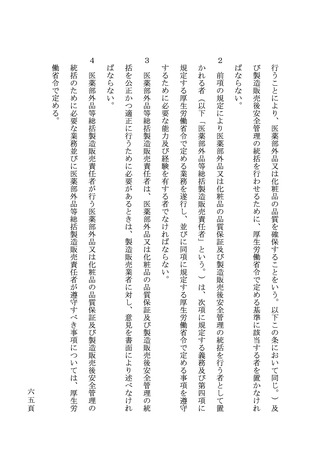 行うことにより、医薬部外品又は化粧品の品質を確保することをいう。以下この条において同じ。）及
び製造販売後安全管理の統括を行わせるために、厚生労働省令で定める基準に該当する者を置かなけれ
ばならない。
２　前項の規定により医薬部外品又は化粧品の品質保証及び製造販売後安全管理の統括を行う者として置
かれる者（以下「医薬部外品等総括製造販売責任者」という。）は、次項に規定する義務及び第四項に
規定する厚生労働省令で定める業務を遂行し、並びに同項に規定する厚生労働省令で定める事項を遵守
するために必要な能力及び経験を有する者でなければならない。
３　医薬部外品等総括製造販売責任者は、医薬部外品又は化粧品の品質保証及び製造販売後安全管理の統
括を公正かつ適正に行うために必要があるときは、製造販売業者に対し、意見を書面により述べなけれ
ばならない。
４　医薬部外品等総括製造販売責任者が行う医薬部外品又は化粧品の品質保証及び製造販売後安全管理の
統括のために必要な業務並びに医薬部外品等総括製造販売責任者が遵守すべき事項については、厚生労
働省令で定める。
六五頁